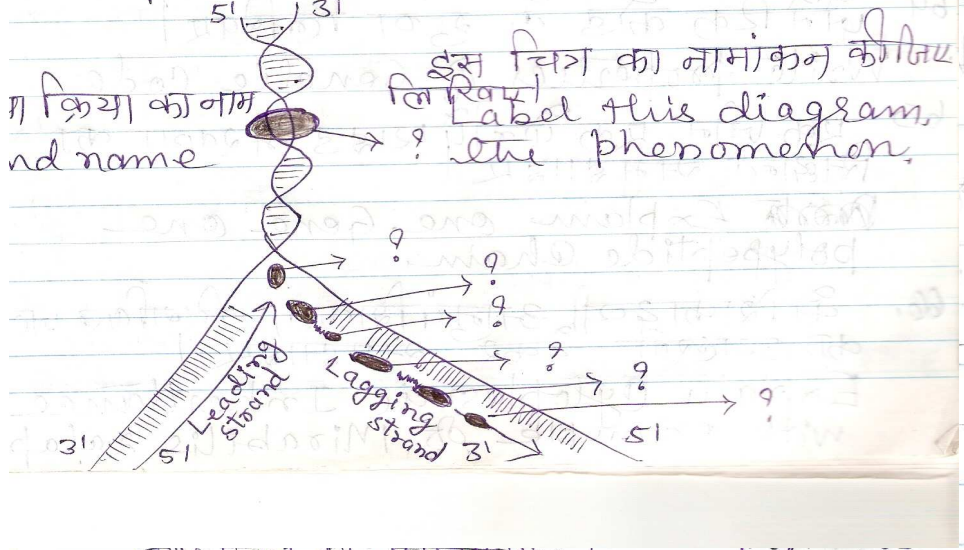 5' 3'
इस चित्र का नामांकन कीजिए
क्रिया का नाम लिखिए।
Label this diagram,
nd name ? the phenomenon.
?
?
?
?
?
?
Leading
strand
Lagging
strand
3' 5' 3' 5'